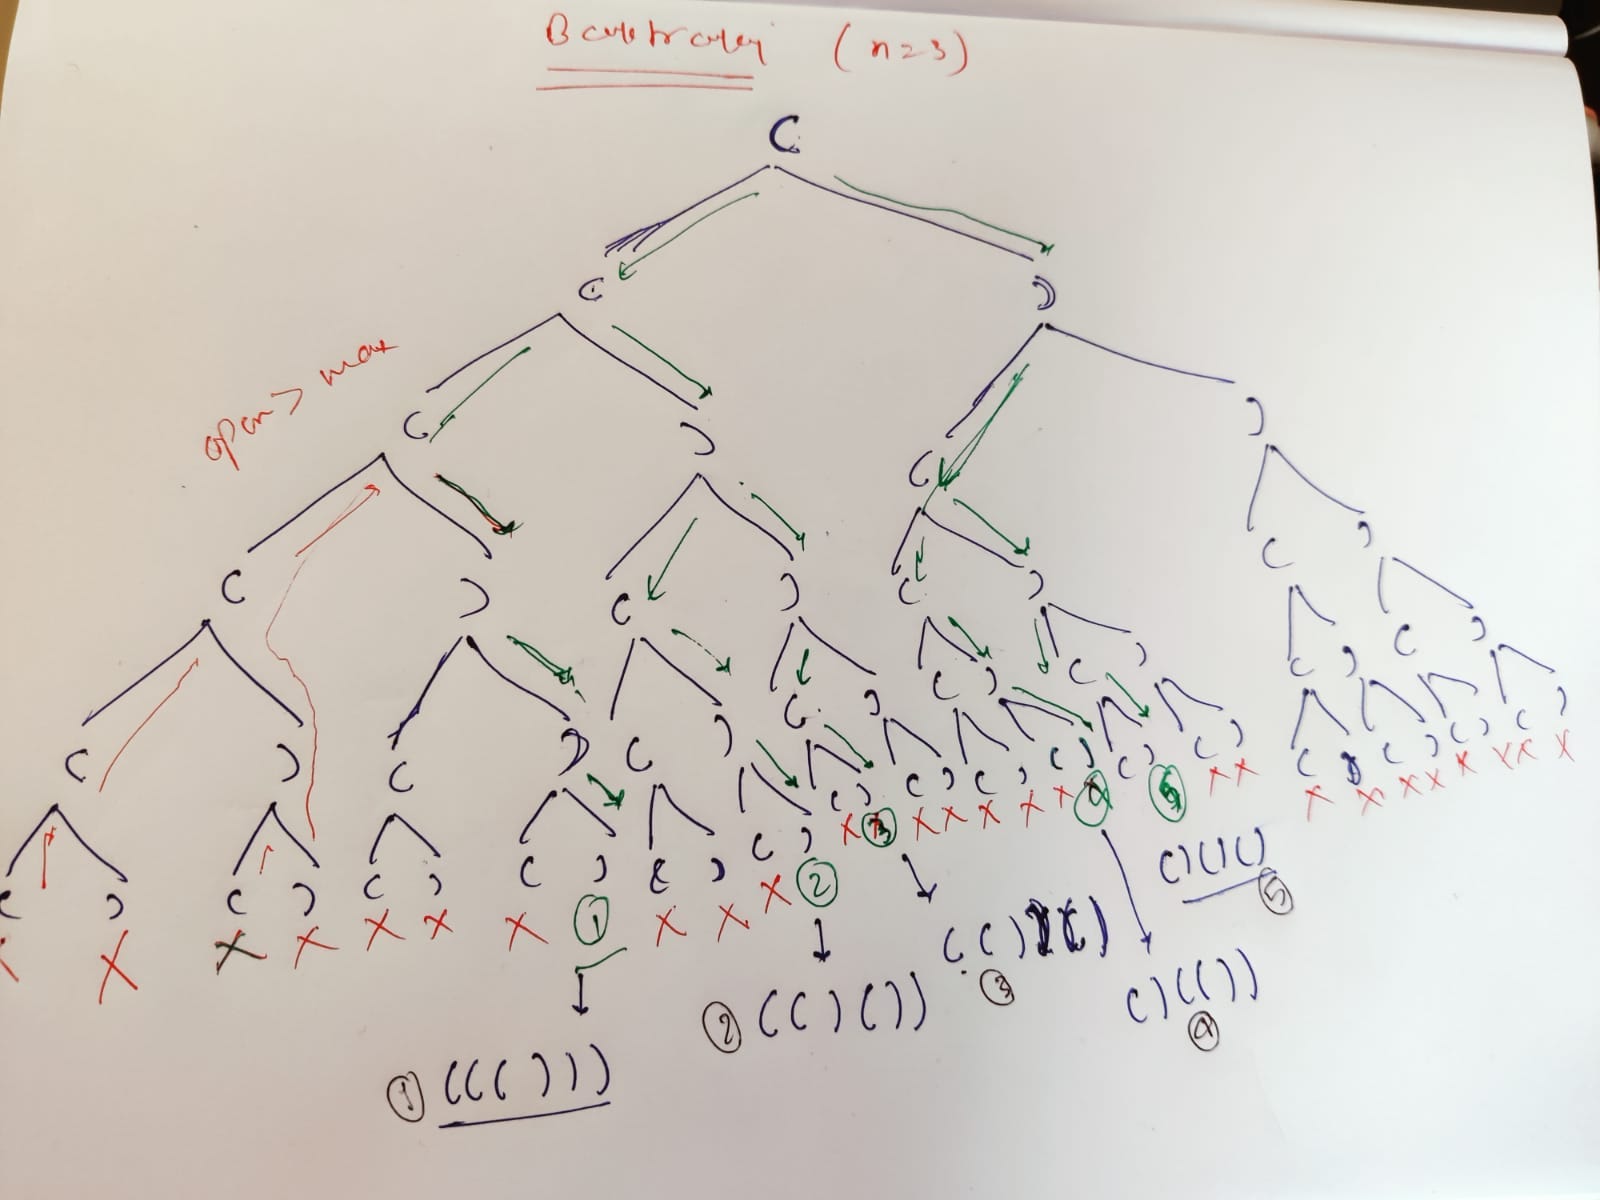 Backtracking (n=3)
(
( )
open > max
( ) ( )
( ) ( ) ( ) ( )
( ) ( ) ( ) ( ) ( ) ( ) ( ) ( )
( ) ( ) ( ) ( ) ( ) ( ) ( ) ( ) ( ) ( ) ( ) ( ) ( ) ( ) ( ) ( )
X X X X X X X ① X X X ② X ③ X X X X X ④ ⑤ X X X X X X X X X X
()()()
⑤
(())()
③
② (()())
()(())
④
① ((()))